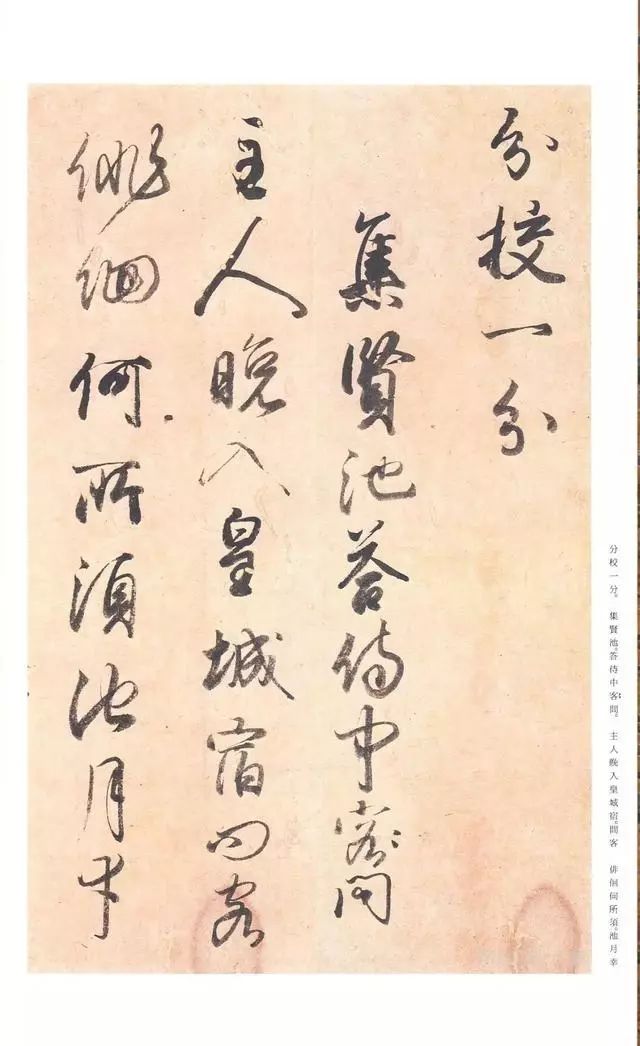 分校一分
集賢池答侍中客問
主人晚入皇城宿问客
俳佪何所須池月幸
分校一分。 集賢池。答待中客問。 主人晚入皇城宿。問客 俳佪何所須。池月幸